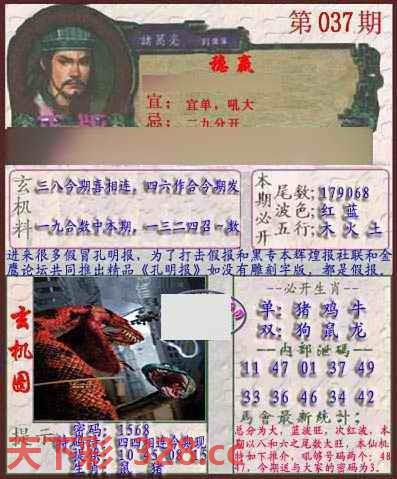 第037期
諸葛亮
稳赢
宜：宜单，吼大
忌：二九分开
玄机料
三八合期喜相连，四六作合今期发
一九合数中本期，一三二四召一数
本期必开
尾数;179068
波色;红 蓝
五行;木 火 土
进来很多假冒孔明报，为了打击假报和黑专本辉煌报社联和金鹰论坛共同推出精品《孔明报》如没有雕刻字版，都是假报。
玄机图
--必开生肖--
单: 猪 鸡 牛
双: 狗 鼠 龙
--内部泄码--
11 47 01 37 49
33 36 46 34 42
馬會最新統計:
总分为大，蓝波旺，次红波，本
期以八和六之尾数大旺，本仙机
特如下推介，吼够号码两个: 48
47，今期送与大家的密码为3.
提示
密码: 1568
四四相连合期现
10 45 08 15
生肖: 鼠 猪
天下彩 328.cc